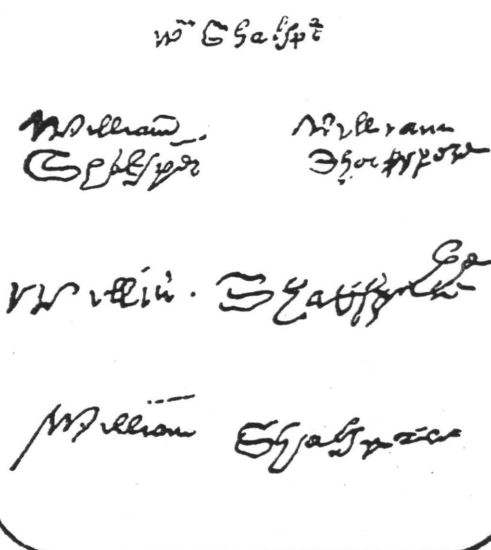 Wm Shakspe
William
Shakspēr
William
Shakspere
Willm Shakspere
William Shakspeare